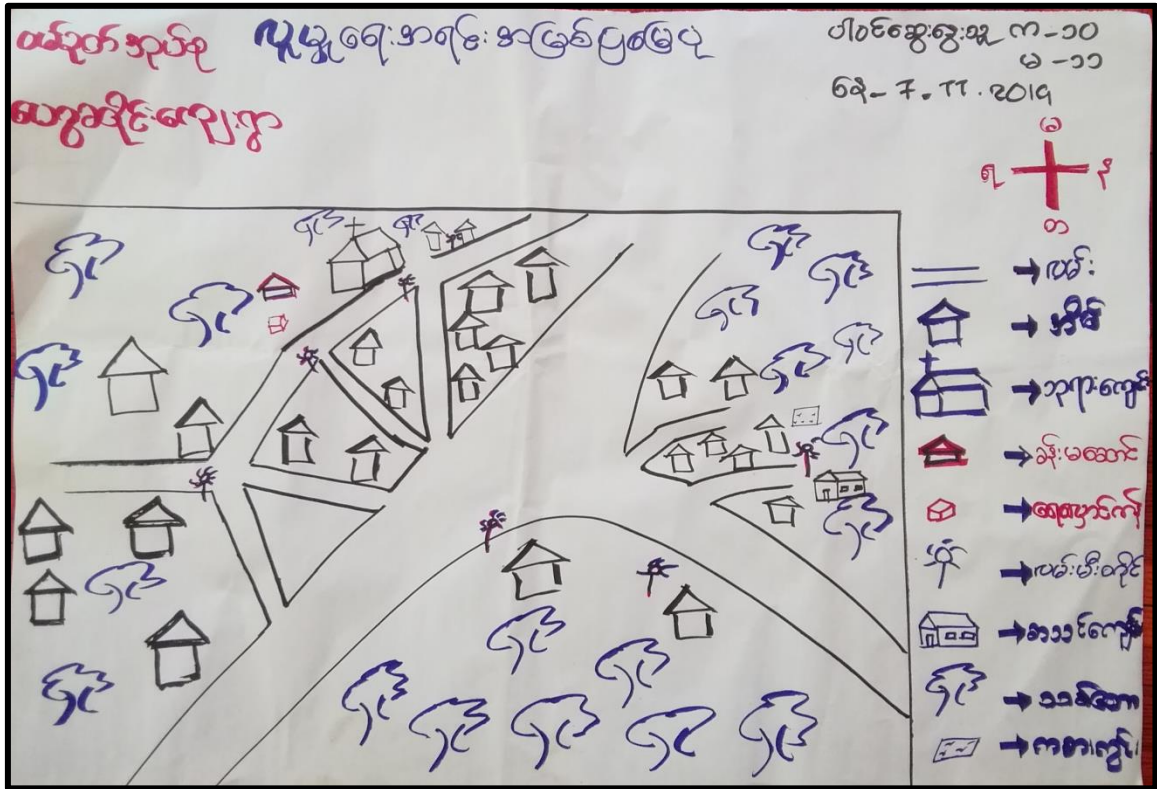 ထမ်ပုတ်အုပ်စု
လူမှုရေးအရင်းအမြစ်ပြမြေပုံ
ပါဝင်ဆွေးနွေးသူ က-၁၀
မ-၁၁
နေ့-7.11.2019
ကျေးရွာ
မ
ရ
န
တ
လမ်း
အိမ်
ဘုရားကျောင်း
ခန်းမဆောင်
ရေလှောင်ကန်
လမ်းမီးတိုင်
စာသင်ကျောင်း
သစ်တော
ကစားကွင်း